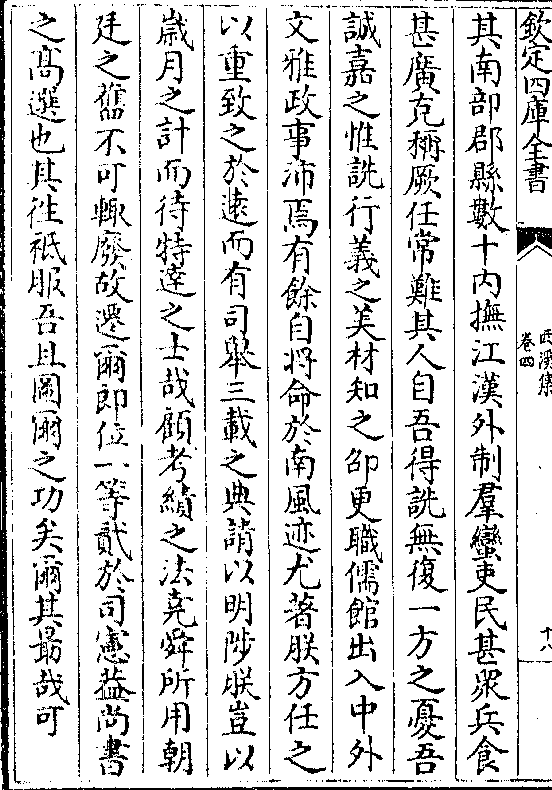 欽定四庫全書
西溪集
卷四
十八
其南部郡縣數十内撫江漢外制羣蠻吏民甚衆兵食
甚廣克稱厥任常難其人自吾得詵無復一方之憂吾
誠嘉之惟詵行義之美材知之卲更職儒館出入中外
文雅政事沛焉有餘自將命於南風迹尤著朕方任之
以重致之於逺而有司舉三載之典請以明陟朕豈以
嵗月之計而待特逹之士哉顧考績之法堯舜所用朝
廷之舊不可輙廢故遷爾即位一等貳於司憲葢尚書
之髙選也其徃祇服吾且圖爾之功矣爾其朂哉可